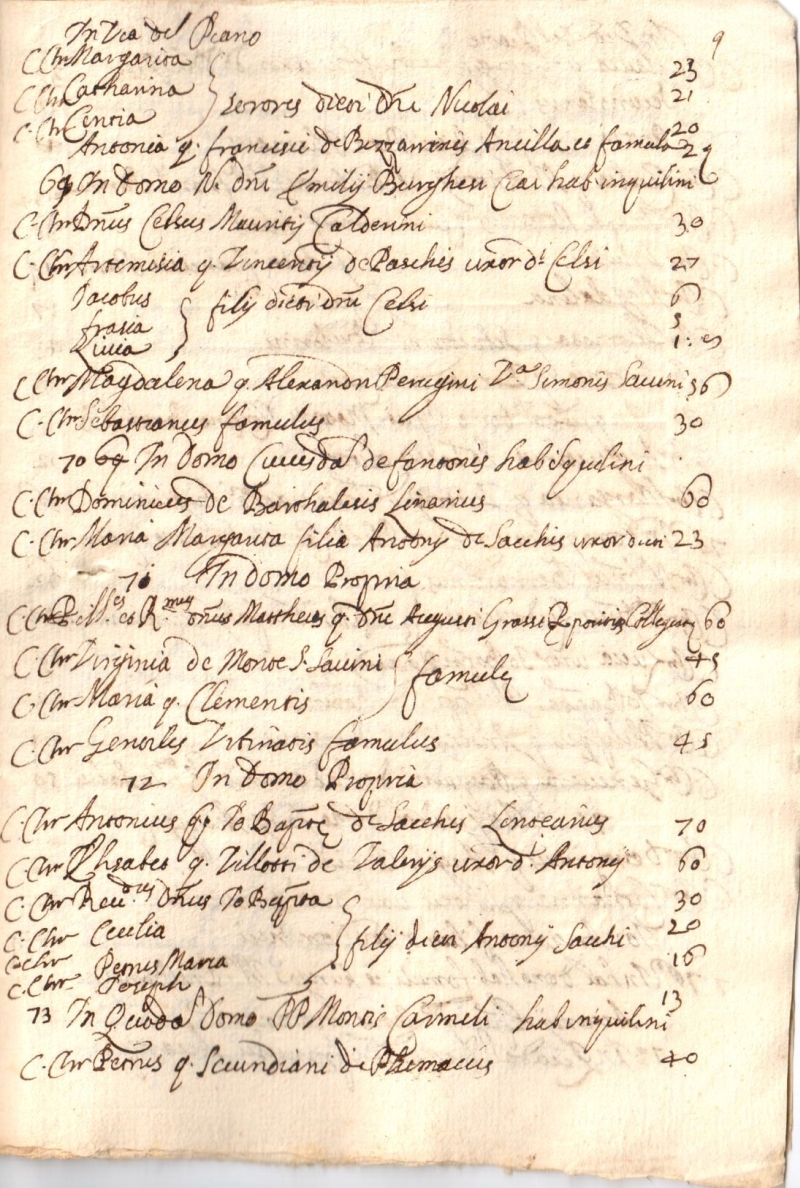 In Via del Piano 9
C. Chr Margarita 23
C. Chr Catharina } sorores dicti dni Nicolai 21
C. Chr Centia 20
Antonia q. francisci de Bizzarrinis Ancilla et famula 29
69 In Domo N. dni Emilij Burghesi habinquilini
C. Chr Dnus Celsus Mauritij Calderini 30
C. Chr Artemisia q. Vincentij de Paschis uxor di Celsi 27
Jacobus } filij dicti dni Celsi 6
frasia 3
Livia 1:
C. Chr Magdalena q. Alexandri Perugini Va Simonis Savini 56
C. Chr Sebastianus famulus 30
70 69 In Domo de fantonis hab
C. Chr Dominicus de Linarius 60
C. Chr Maria Margarita filia Antonij de Sacchis uxor dicti 23
71 In domo Propria
C. Chr et R.mus dnus Mattheus q. dni Augusti Grassi 60
C. Chr Virginia de Monte S. Savini } famule 45
C. Chr Maria q. Clementis 60
C. Chr Gentiles famulus 45
72 In Domo Propria
C. Chr Antonius Jo Bapte de Sacchis 70
C. Chr q. de Valerijs uxor d. Antonij 60
C. Chr Reu.dus Dnus Jo Bapta 30
C. Chr Cecilia } filij dicti Antonij Sacchi 20
C. Chr Petrus Maria 16
C. Chr Joseph 13
73 In Domo PP Montis Carmeli habinquilini
C. Chr Petrus q. de 40